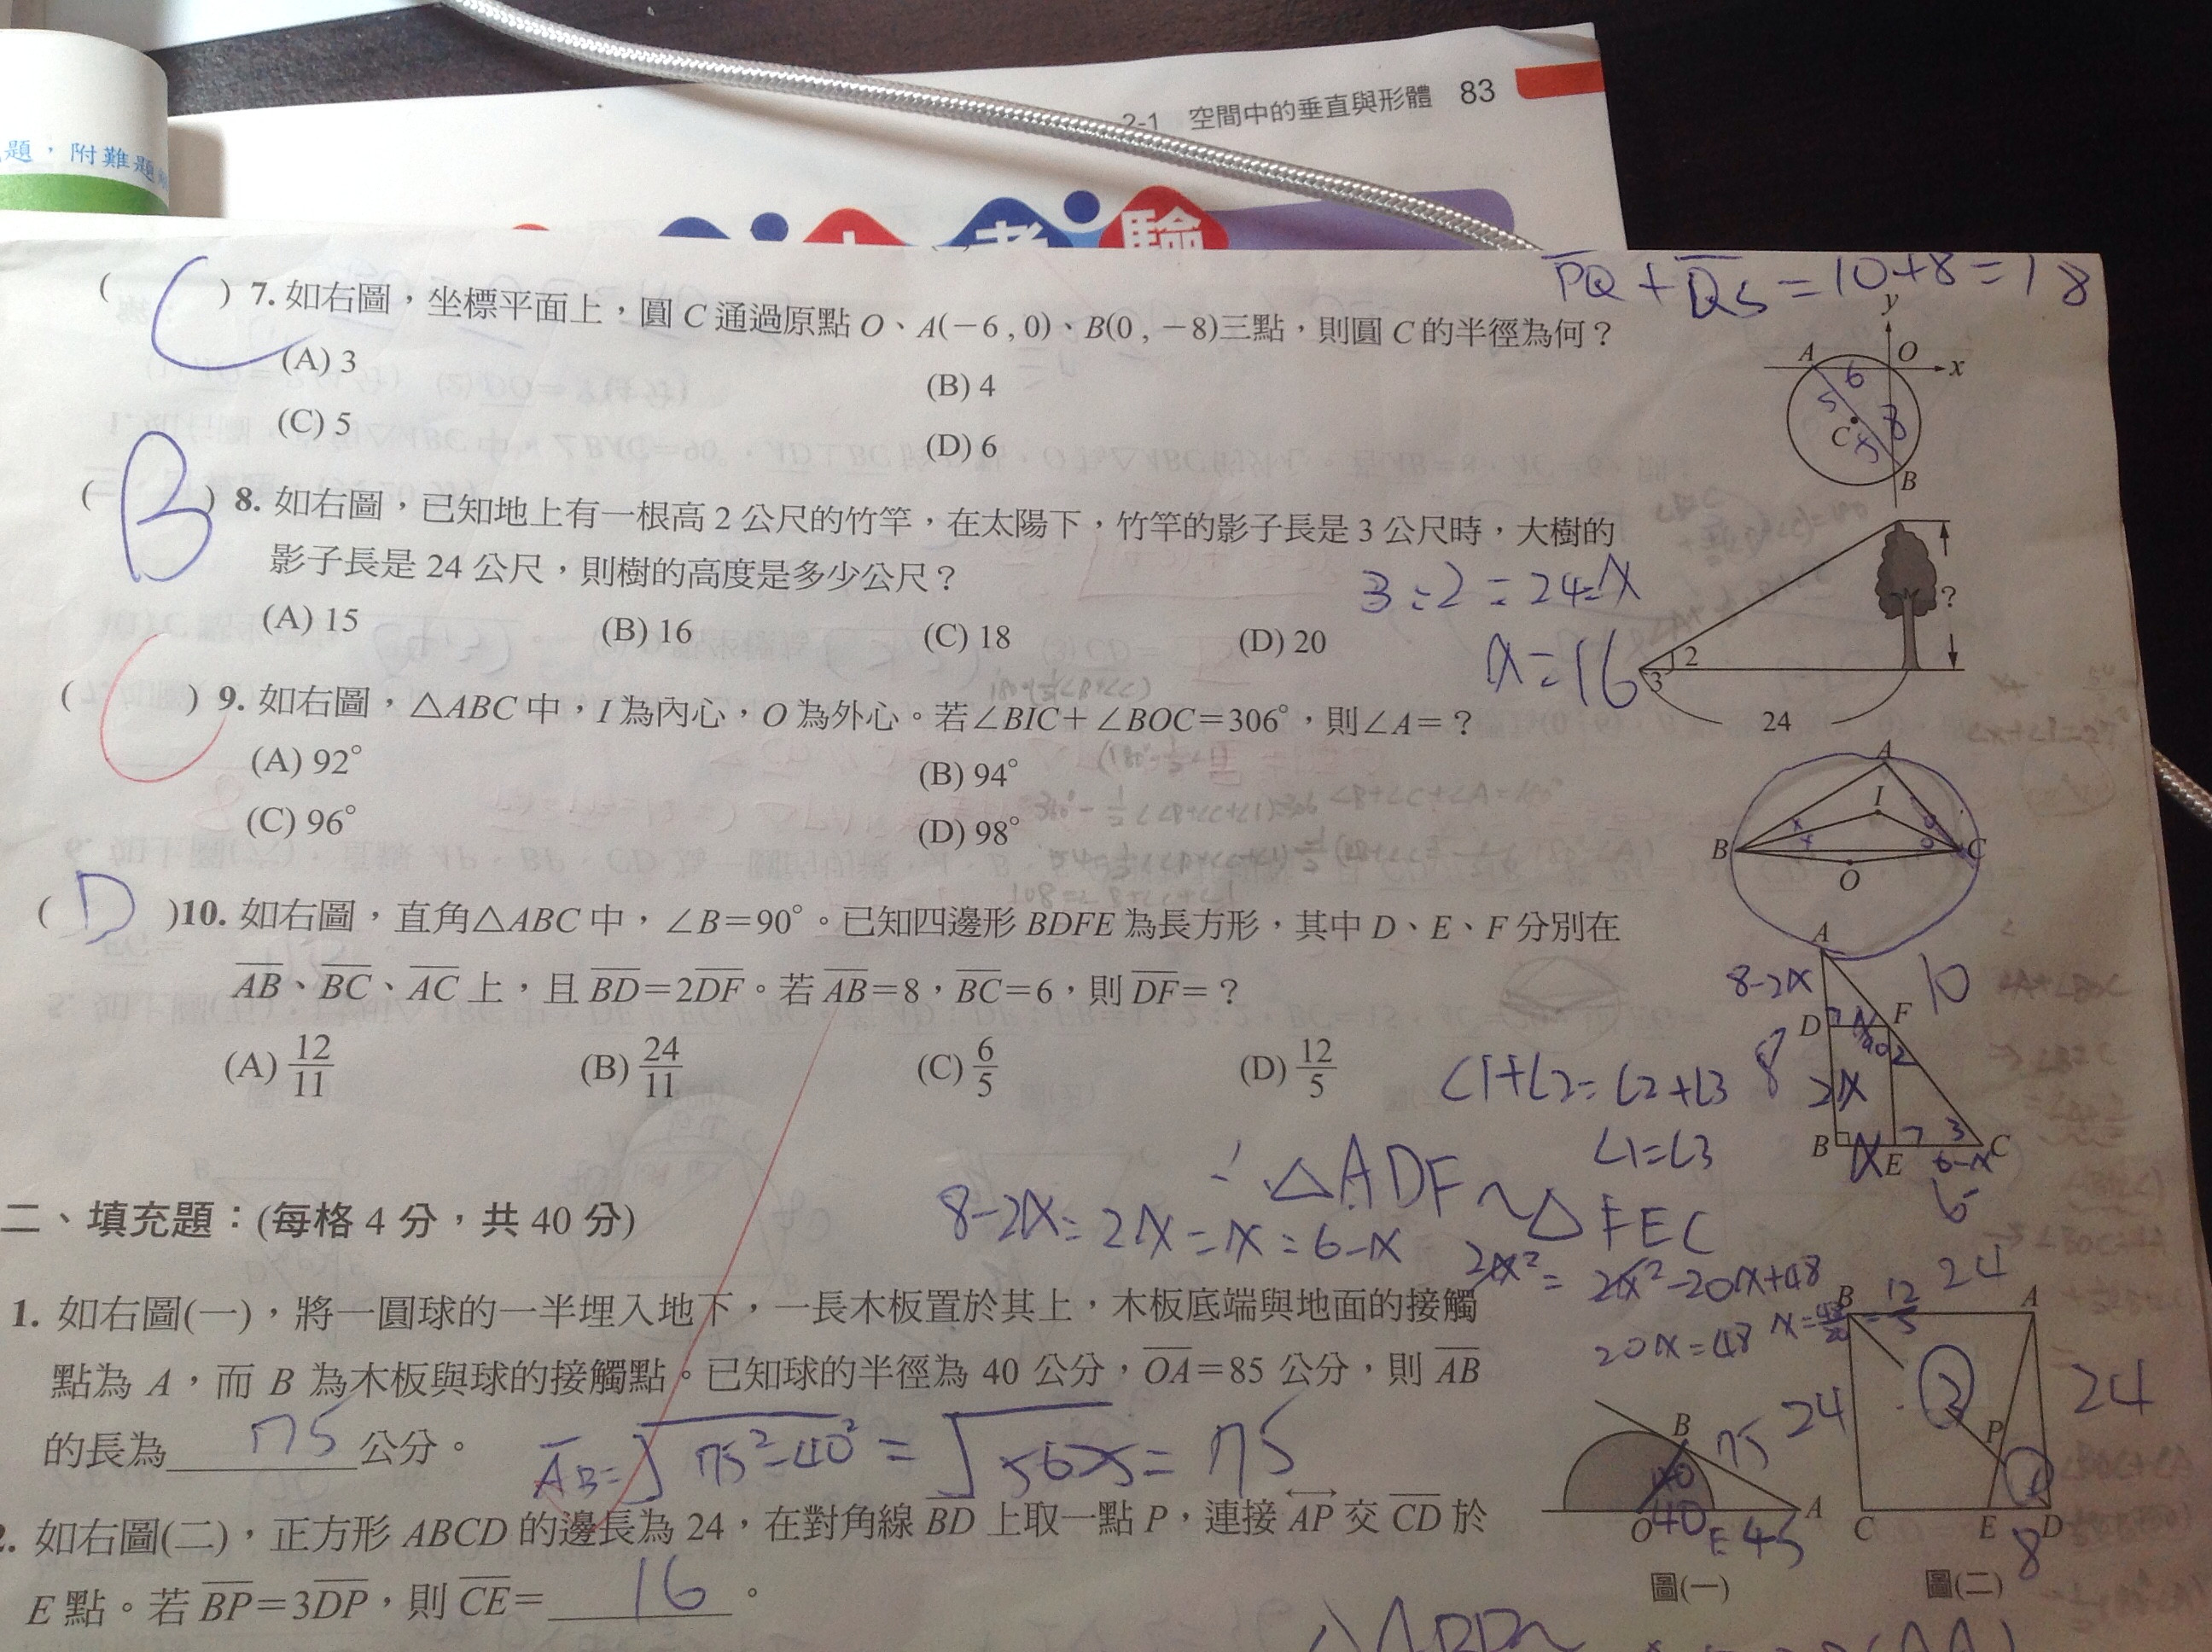 2-1 空間中的垂直與形體 83
題，附難題
考驗
PQ + QS = 10+8 = 18
( C ) 7. 如右圖，坐標平面上，圓 C 通過原點 O、A(−6 , 0)、B(0 , −8)三點，則圓 C 的半徑為何？
(A) 3
(B) 4
(C) 5
(D) 6
y
A O x
6
5 8
C 5
B
( B ) 8. 如右圖，已知地上有一根高 2 公尺的竹竿，在太陽下，竹竿的影子長是 3 公尺時，大樹的
影子長是 24 公尺，則樹的高度是多少公尺？
3:2=24:x
(A) 15 (B) 16 (C) 18 (D) 20
x=16
?
2
3
24
( C ) 9. 如右圖，△ABC 中，I 為內心，O 為外心。若∠BIC＋∠BOC＝306°，則∠A＝？
(A) 92°
(B) 94°
(C) 96°
(D) 98°
A
I
B C
O
( D )10. 如右圖，直角△ABC 中，∠B＝90°。已知四邊形 BDFE 為長方形，其中 D、E、F 分別在
AB、BC、AC 上，且 BD＝2DF。若 AB＝8，BC＝6，則 DF＝？
(A) 12/11 (B) 24/11 (C) 6/5 (D) 12/5
A
8-2x 10
D F
8 2x 2
B x E 3 C
6-x
6
∠1+∠2=∠2+∠3
∠1=∠3
∴△ADF~△FEC
8-2x:2x=x:6-x
2x²=2x²-20x+48
20x=48 x=48/20=12/5
二、填充題：(每格 4 分，共 40 分)
1. 如右圖(一)，將一圓球的一半埋入地下，一長木板置於其上，木板底端與地面的接觸
點為 A，而 B 為木板與球的接觸點。已知球的半徑為 40 公分，OA＝85 公分，則 AB
的長為 75 公分。
AB=√75²-40²=√5625=75
B 75
40
O 40 E 45 A
圖(一)
24
B A
24 3 24
P
1
C E D
8
圖(二)
2. 如右圖(二)，正方形 ABCD 的邊長為 24，在對角線 BD 上取一點 P，連接 AP 交 CD 於
E 點。若 BP＝3DP，則 CE＝ 16 。